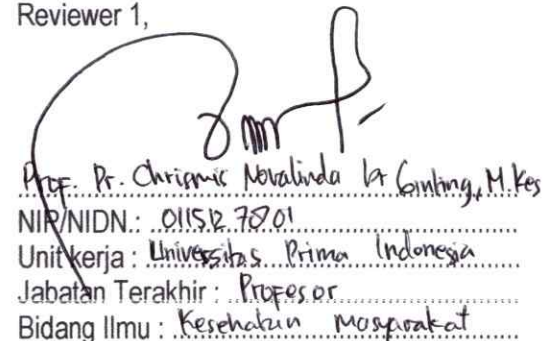 Reviewer 1,
Prof. Dr. Chrismis Novalinda br Ginting, M.Kes
NIP/NIDN.: 0115127801
Unit kerja : Universitas Prima Indonesia
Jabatan Terakhir : Profesor
Bidang Ilmu : Kesehatan Masyarakat